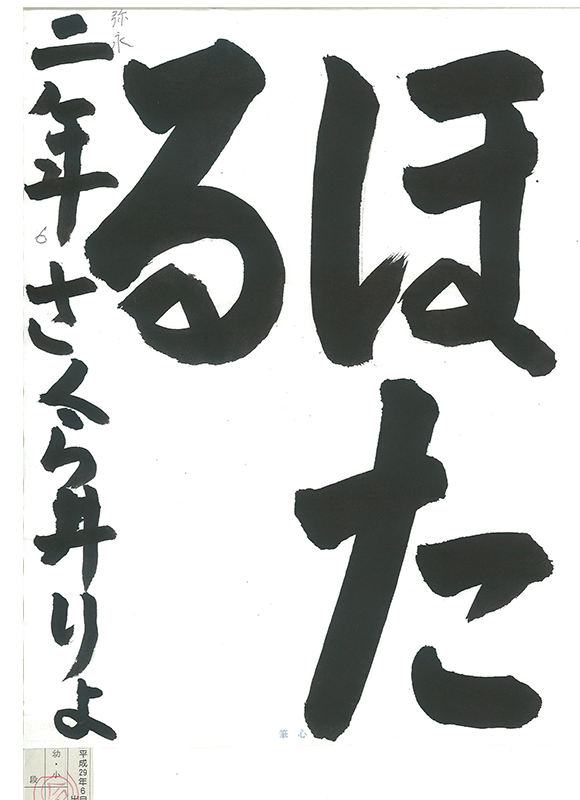 ほた
る
二年 さくら井りよ
弥永
6
心筆
平成29年6
幼・小
段